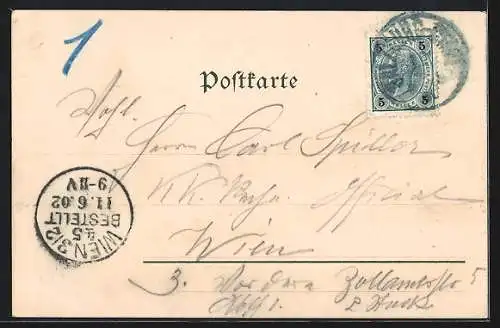 1
5 5
5 5
Postkarte
Wohl.
Herrn Carl Spiller
KK. Official
Wien
3. Vordere Zollamtsstr 5
2 Stock
WIEN 3/2
45
BESTELLT
11.6.02
9-IIV